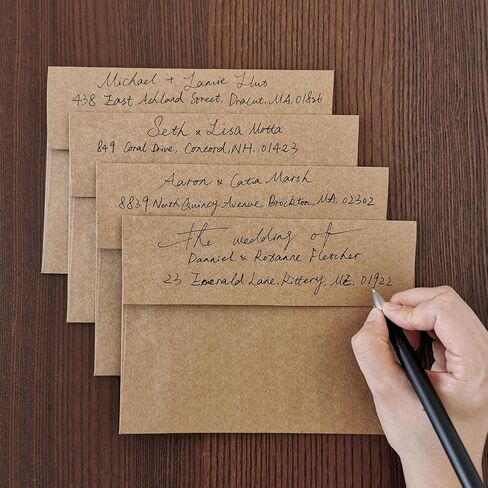 Michael + Lanie Hut
438 East Ashland Street, Dracut, MA. 01826
Seth & Lisa Motta
849 Coral Drive, Concord, NH. 01423
Aaron & Catia Marsh
8839 North Quincy Avenue, Brockton, MA. 02302
The wedding of
Danniel & Roxanne Fletcher
23 Emerald Lane, Kittery, ME. 01922